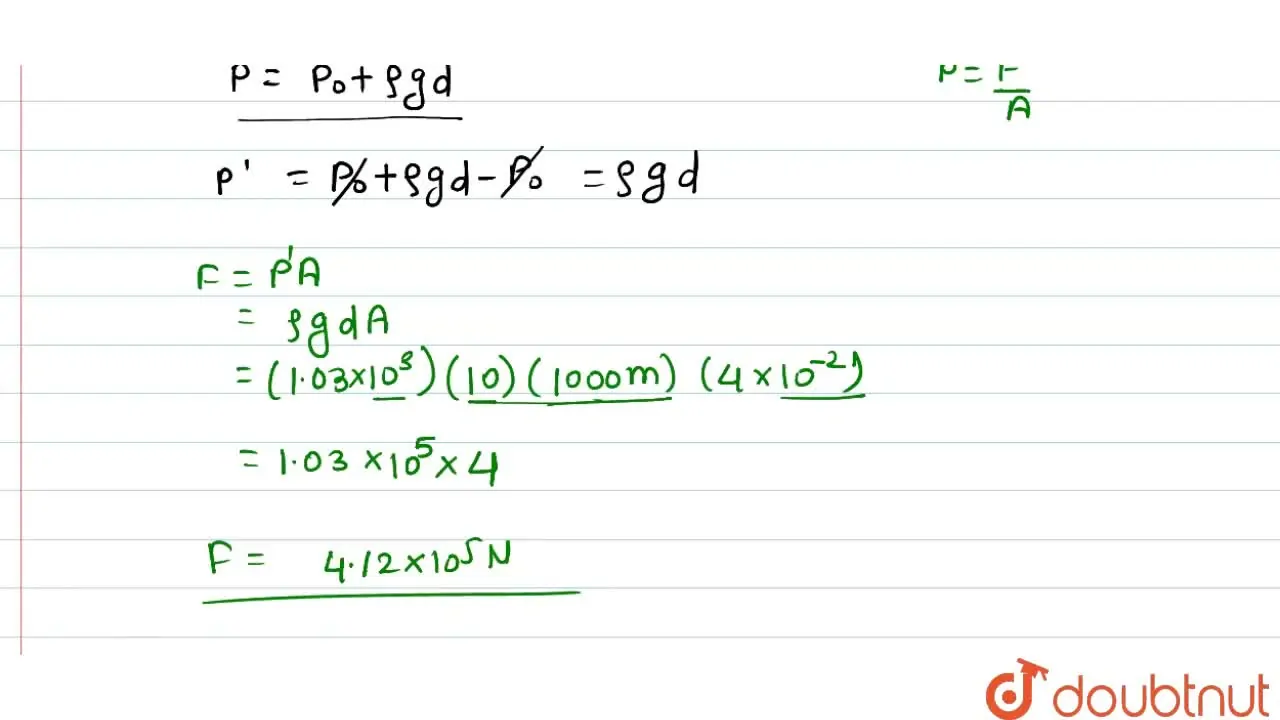 P = P₀ + ρgd
P = F/A
P' = P₀ + ρgd - P₀ = ρgd
F = P'A
= ρgdA
= (1.03×10³)(10)(1000m)(4×10⁻²)
= 1.03 ×10⁵ × 4
F = 4.12×10⁵ N
doubtnut